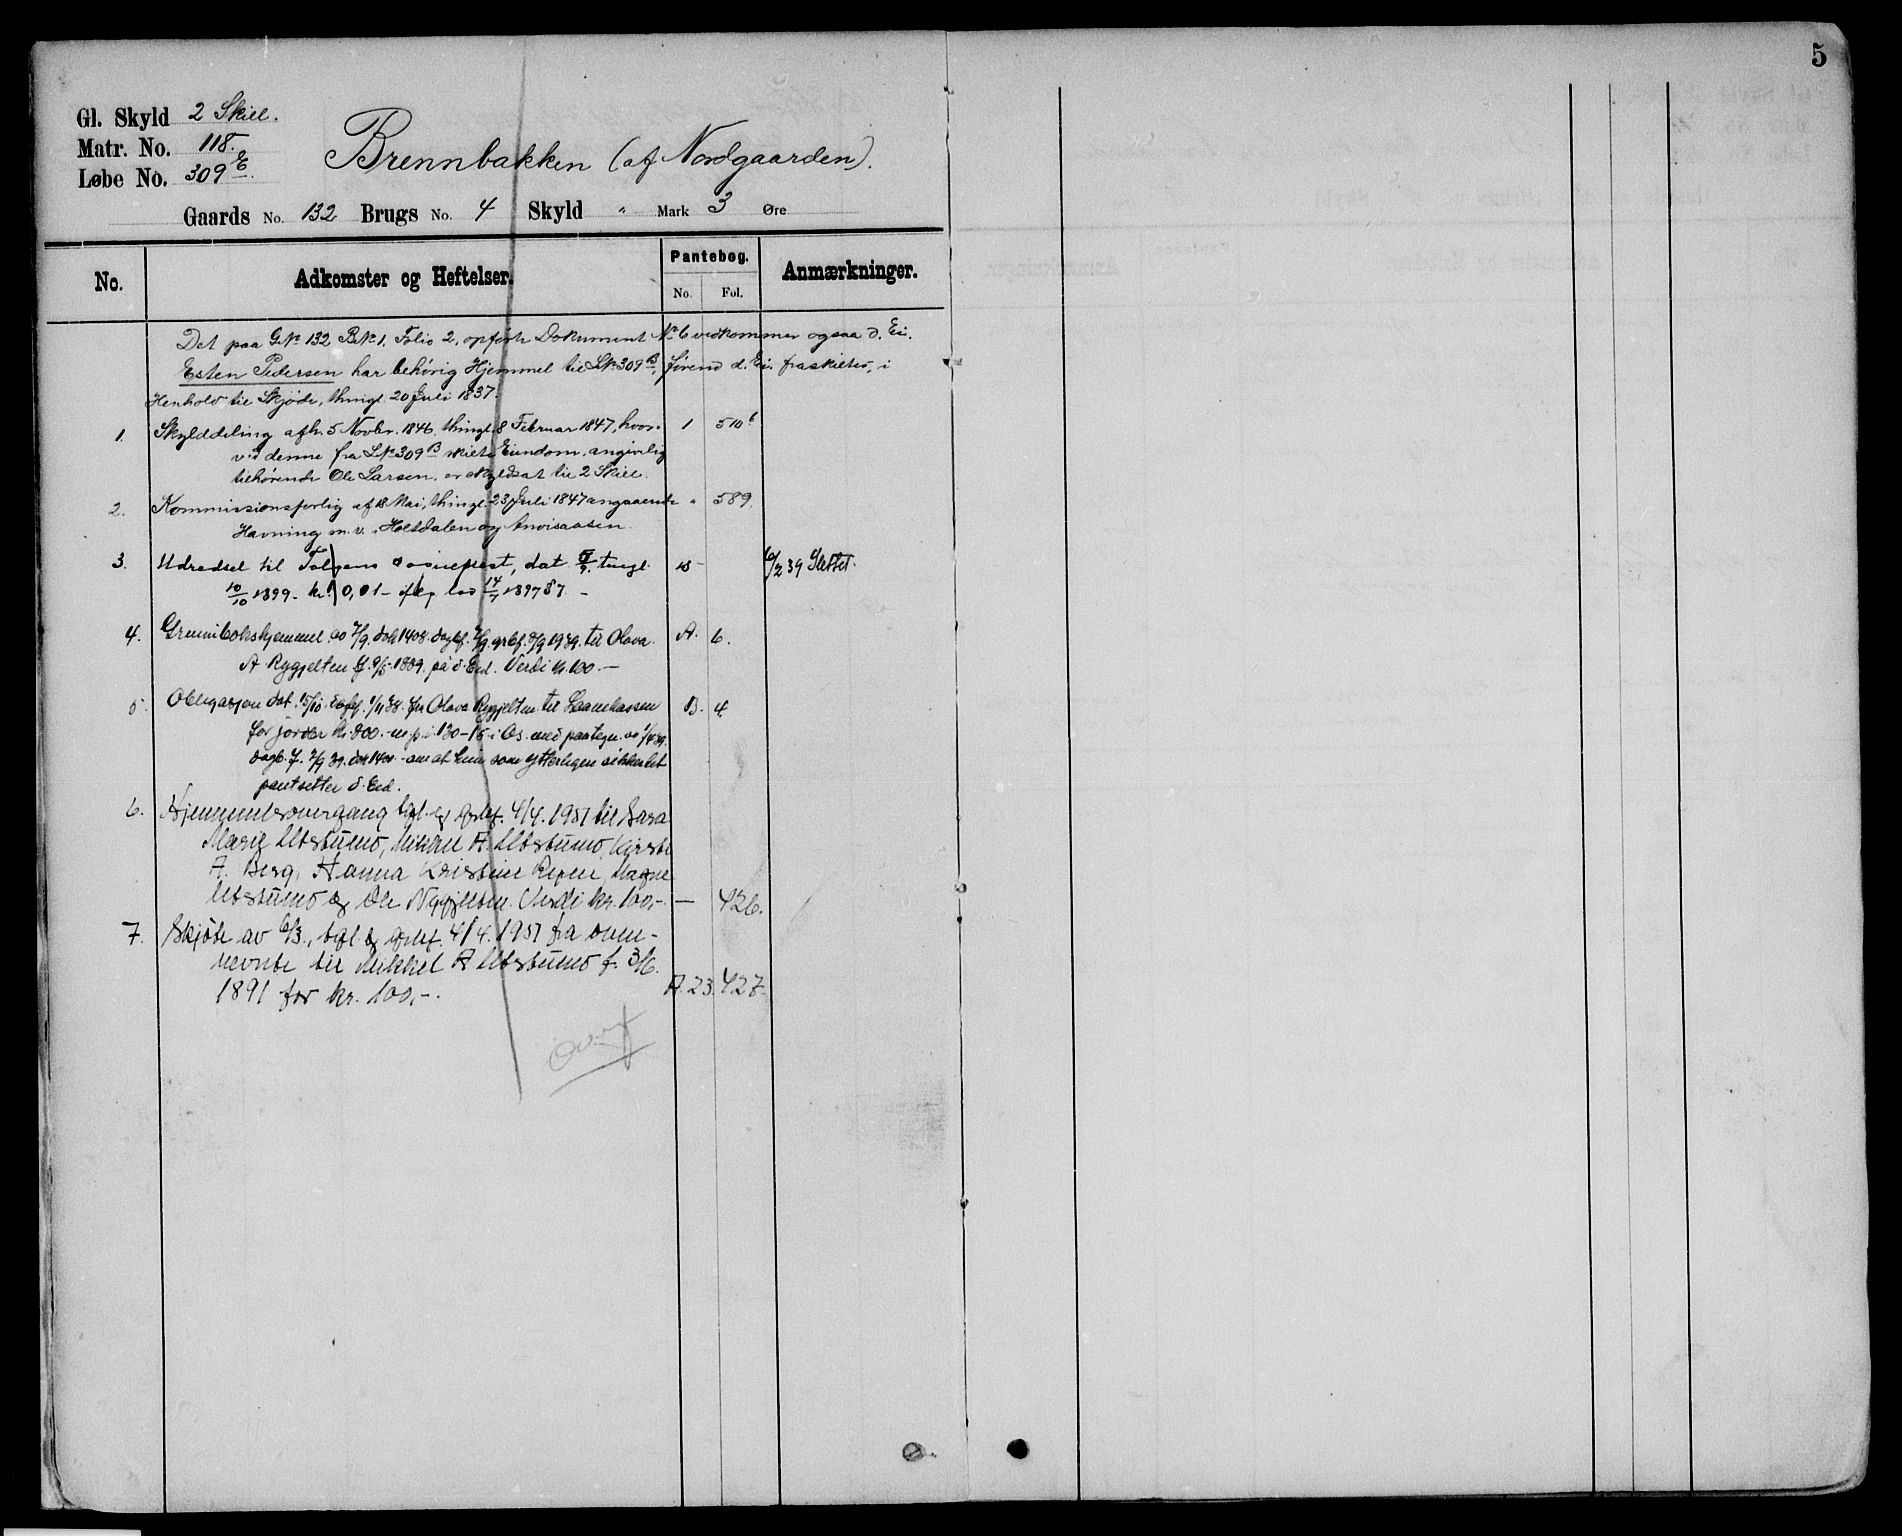 5
Gl. Skyld 2 Skill.
Matr. No. 118.
Løbe No. 309 E.
Brennbakken (af Nordgaarden).
Gaards No. 132 Brugs No. 4 Skyld " Mark 3 Øre
No. Adkomster og Heftelser. Pantebog. Anmærkninger.
No. Fol.
Det paa GNo 132 BNo 1. Folio 2, opførte Dokument No 6 vedkommer ogsaa d. Ei.
Esten Pedersen har behørig Hjemmel til LNo 309 B, førend d. Ei. fraskiltes, i
Henhold til Skjøde, thingl. 20 Juli 1837.
1. Skylddeling afh. 5 Novbr. 1846, thingl. 8 Februar 1847, hvor- 1 510 b
ved denne fra LNo 309 B skilte Eiendom, angivelig
tilhørende Ole Larsen, er skyldsat til 2 Skill.
2. Kommissionsforlig af 18 Mai, thingl. 23 Juli 1847 angaaende " 589.
Havning m.v. i Holsdalen og
3. Udredsel til Tolgens sogneprest, dat 5/9. tingl. 18 - 6/2 39 Slettet.
10/10 1899 - kr. 0,01 - iflg lov 14/7 1897 §7 -
4. Grunnbokshjemmel av 7/9. dok 1408. dagbf. 7/9. grbf. 8/9 1939. til Olava A. 6.
A Ryggjelten f. 9/5 1889. på d. Eid. Verdi kr. 100. -
5. Obligasjon dat. 15/10. dagbf. 1/11 38. fra Olava Ryggjelten til Lånekassen B. 4.
for jorder kr. 800. - m.p. i 130-15 i Os. med paategn. av 1/4 39.
dagb. f. 7/9 39. dok 1409 - om at hun som ytterligere sikkerhet
pantsetter d. Eid.
6. Hjemmelsovergang tgl. og grbf. 4/4. 1951 til Sara
Marie Utstumo, Mikkel A Utstumo, Kjersti
A. Berg, Hanna Kristine Røsen, Magne
Utstumo og Ole Ryggjelten. Verdi kr. 100,- — 426.
7. Skjøte av 6/3., tgl. og grbf. 4/4. 1951 fra oven-
nevnte til Mikkel A Utstumo f. 3/6.
1891 for kr. 100,-. A. 23. 427.
Overf